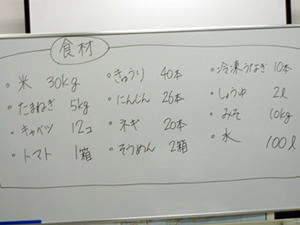 食材
・米 30kg
・たまねぎ 5kg
・キャベツ 12コ
・トマト 1箱
・きゅうり 40本
・にんじん 26本
・ネギ 20本
・そうめん 2箱
・冷凍うなぎ 10本
・しょうゆ 2ℓ
・みそ 10kg
・水 100ℓ